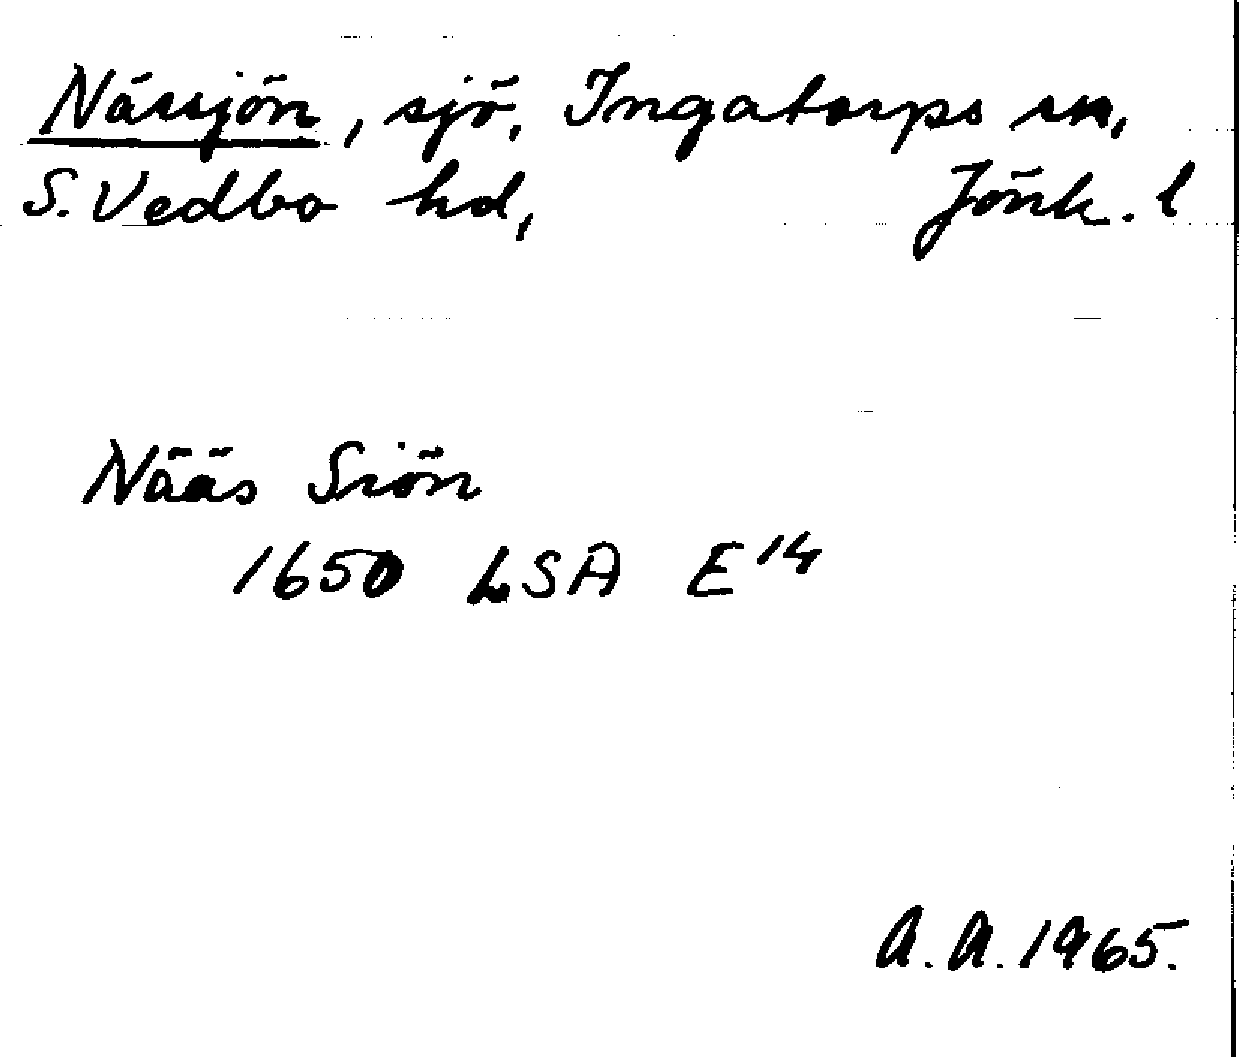 Nässjön, sjö, Ingatorps sn,
S. Vedbo hd, Jönk. l
Nääs Siön
1650 LSA E 14
A.A. 1965.